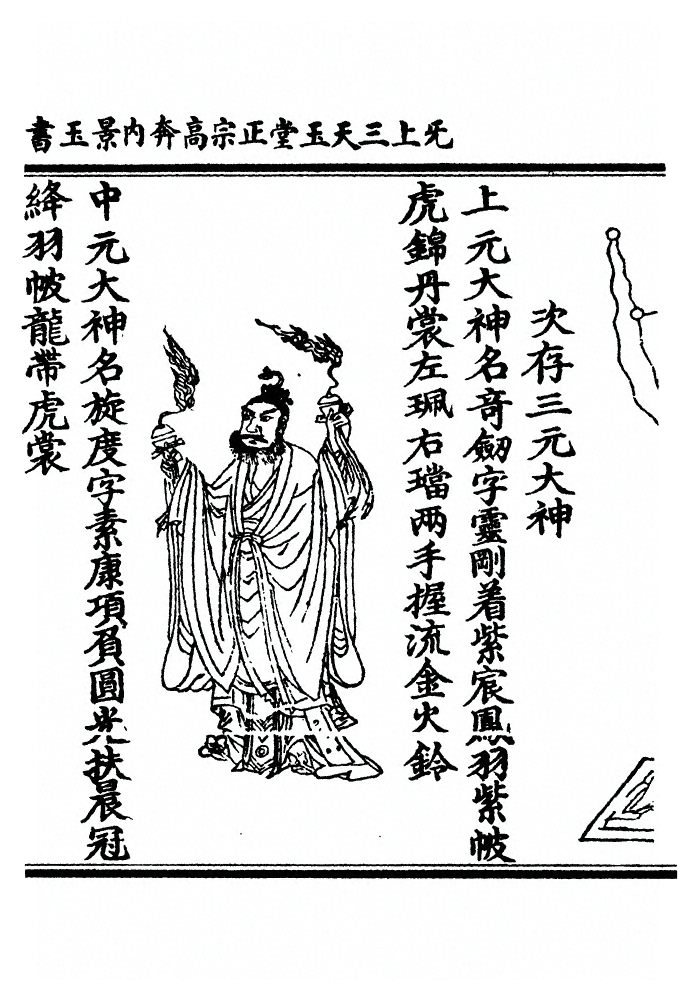 无上三天玉堂正宗高奔内景玉書
次存三元大神
上元大神名竒劒字靈剛着紫宸鳳羽紫帔
虎錦丹裳左珮右璫两手握流金火鈴
中元大神名旋度字素康項負圓光扶晨冠
絳羽帔龍帯虎裳